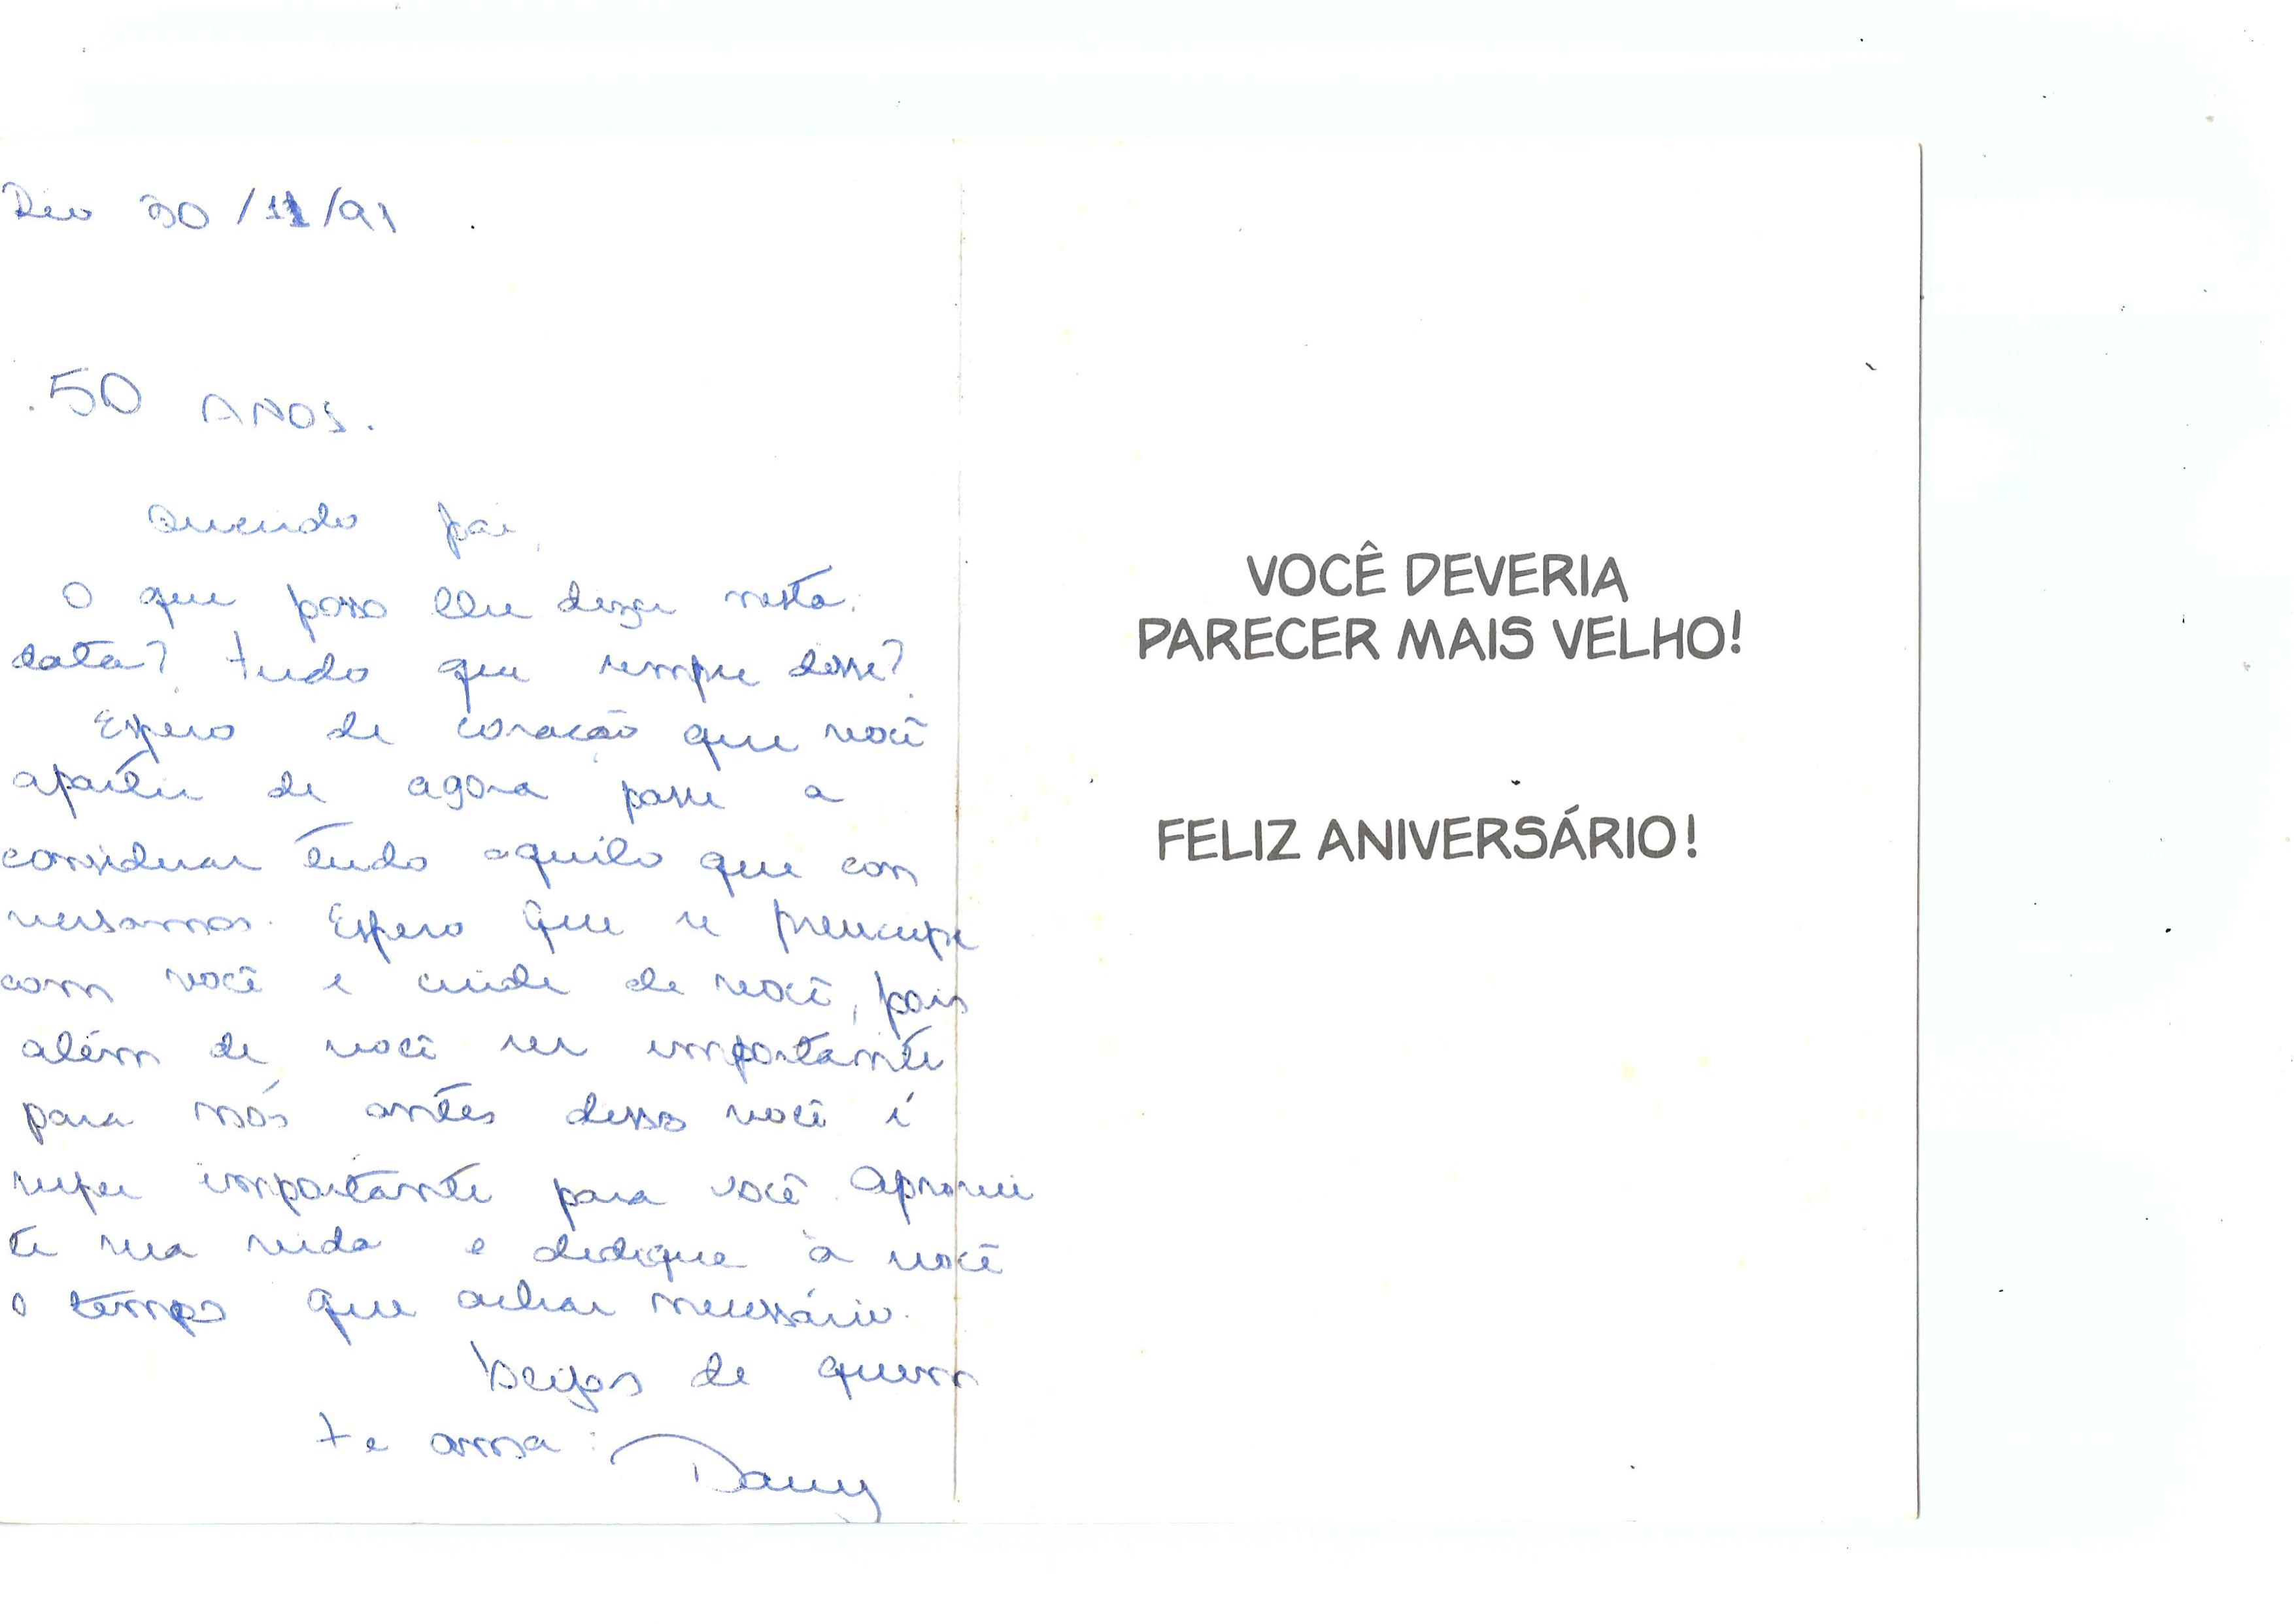 Rio 30/11/91
50 ANOS.
Querido pai,
O que posso lhe dizer nesta
data? tudo que sempre disse?
Espero de coração que você
apartir de agora passe a
considerar tudo aquilo que con
versamos. Espero que se preucupe
com você e cuide de você, pois
além de você ser importante
para nós antes disso você é
super importante para você. Aprovei
te sua vida e dedique à você
o tempo que achar necessário.
beijos de quem
te ama:
Dany
VOCÊ DEVERIA
PARECER MAIS VELHO!
FELIZ ANIVERSÁRIO!